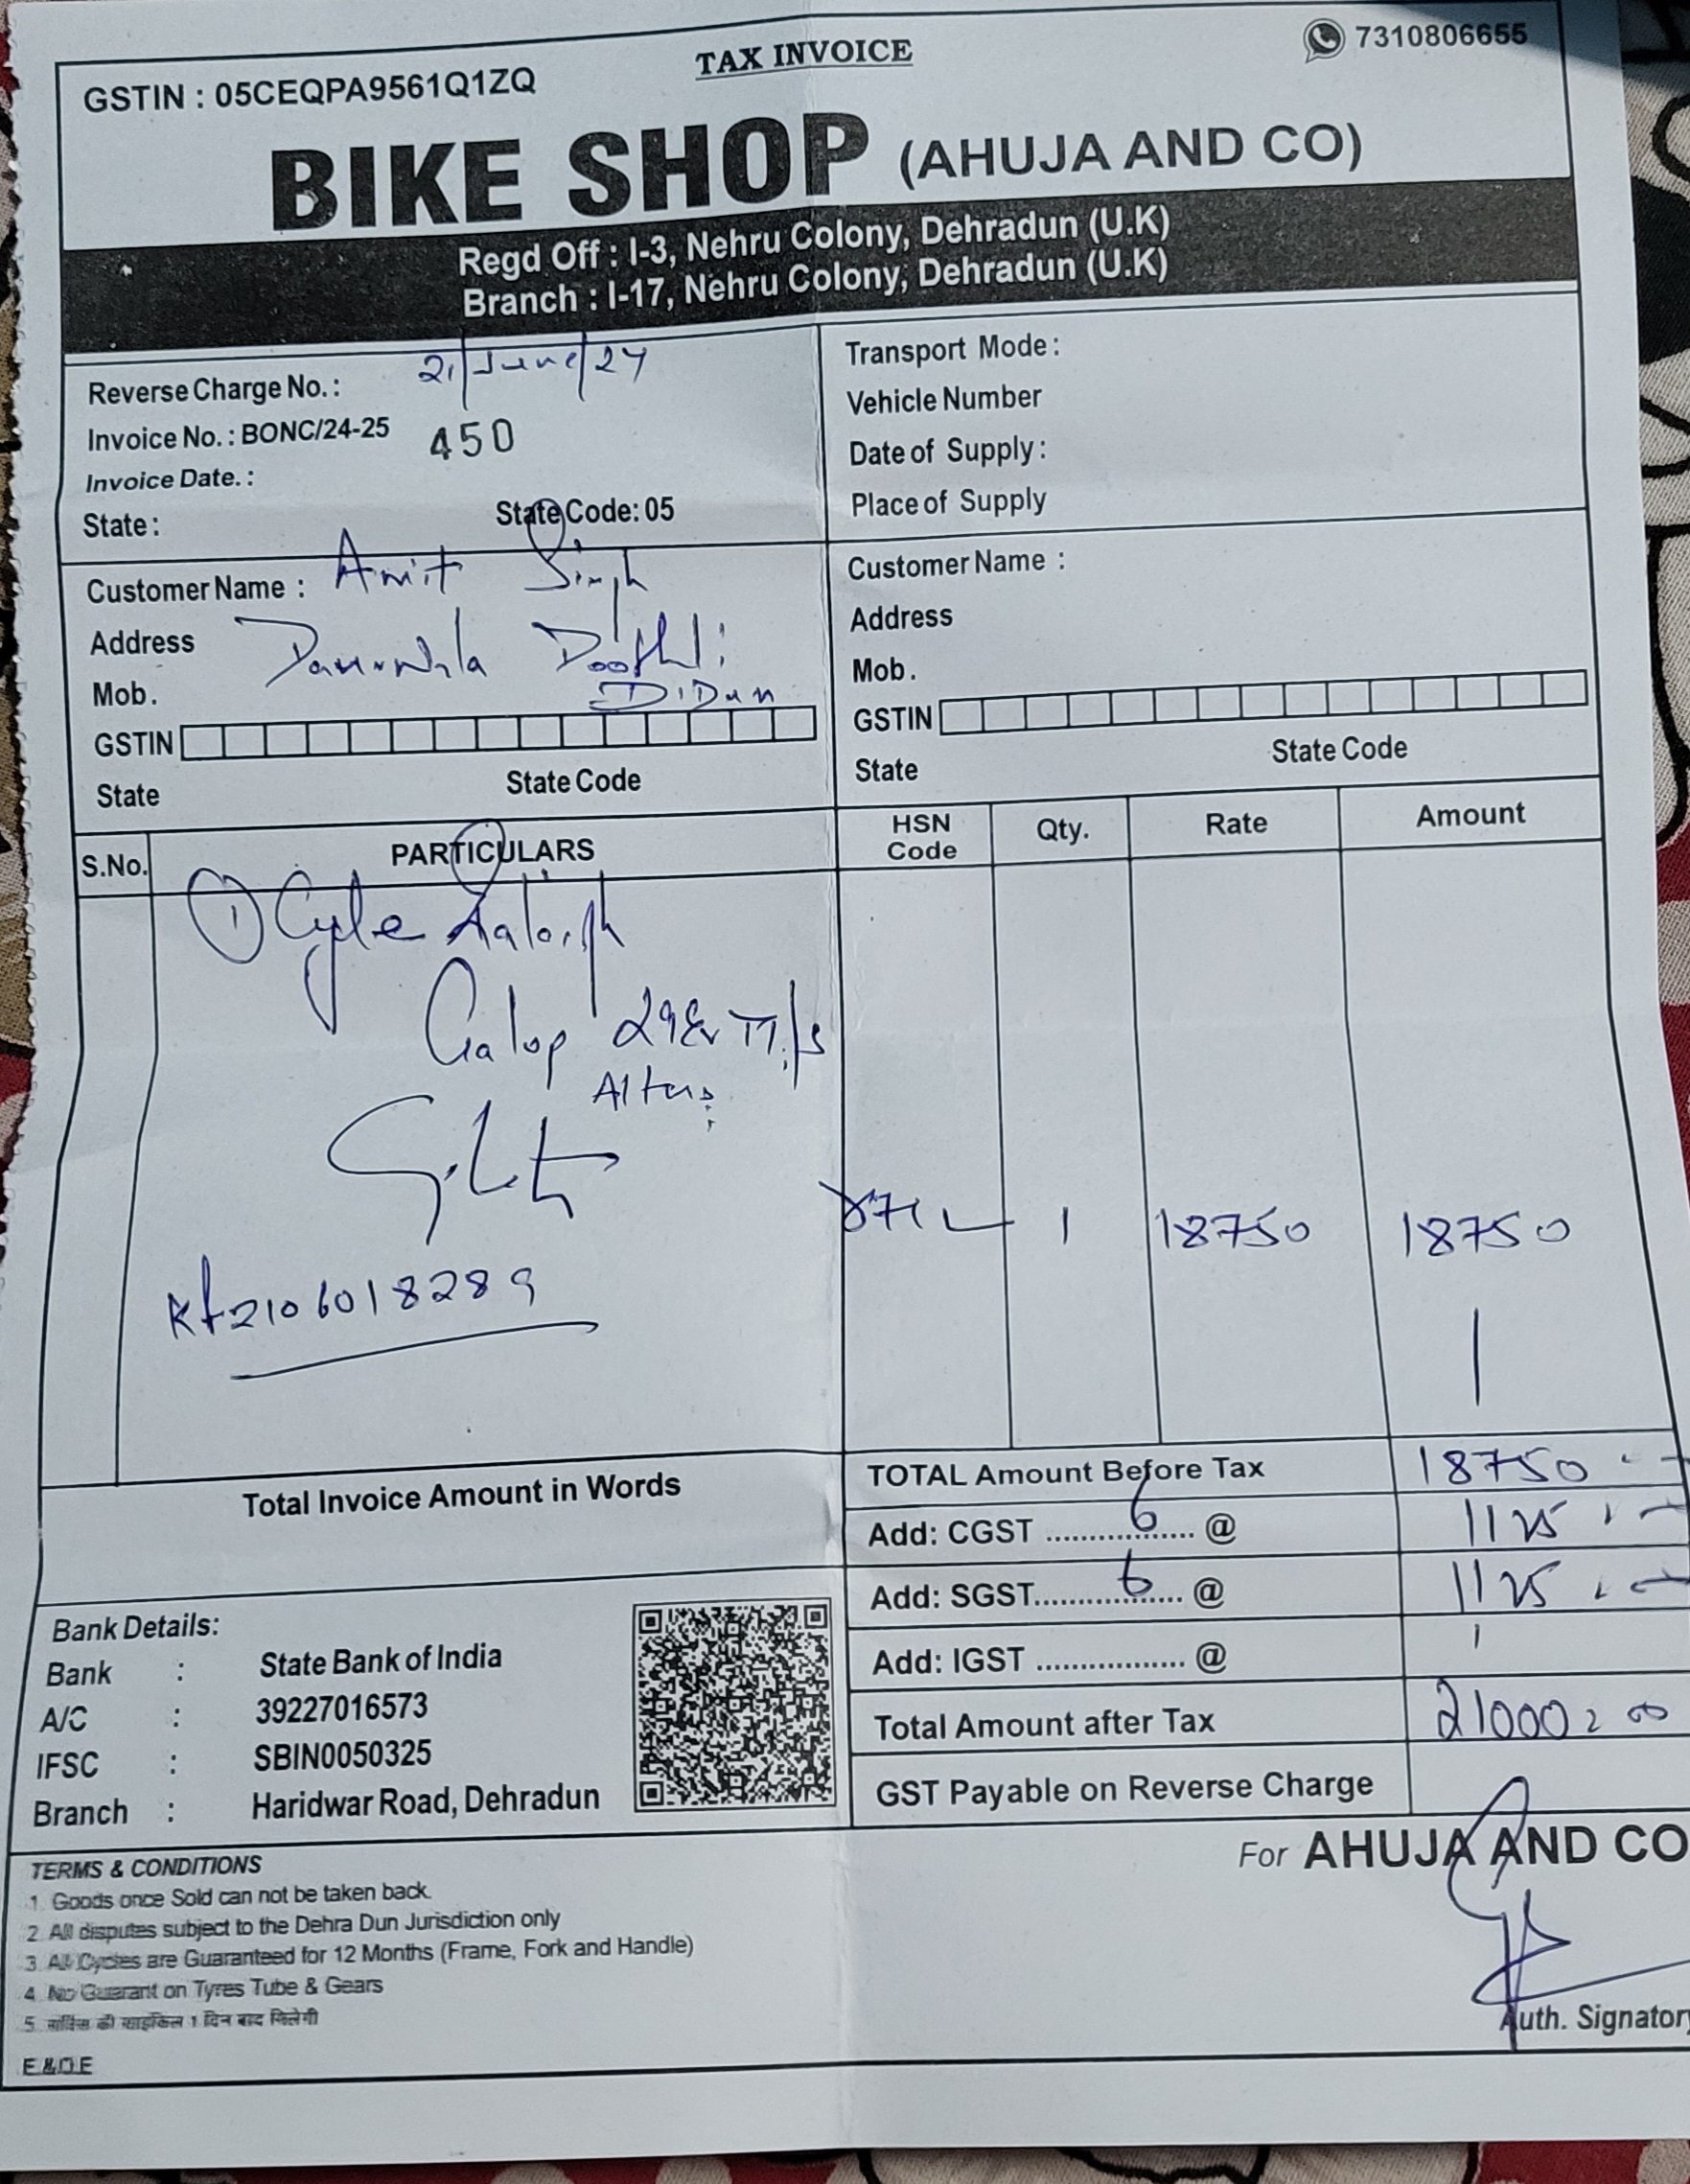 TAX INVOICE
7310806655
GSTIN : 05CEQPA9561Q1ZQ
BIKE SHOP (AHUJA AND CO)
Regd Off : I-3, Nehru Colony, Dehradun (U.K)
Branch : I-17, Nehru Colony, Dehradun (U.K)
Reverse Charge No. : 21/June/24
Invoice No. : BONC/24-25 450
Invoice Date. :
State : State Code: 05
Transport Mode :
Vehicle Number
Date of Supply :
Place of Supply
Customer Name : Amit Singh
Address
Mob. D.Dun
GSTIN
State State Code
Customer Name :
Address
Mob.
GSTIN
State State Code
S.No. PARTICULARS HSN Code Qty. Rate Amount
1 Cycle
Galop
8712 1 18750 18750
2106018289
Total Invoice Amount in Words
TOTAL Amount Before Tax 18750
Add: CGST ........6........ @ 1125
Add: SGST........6........ @ 1125
Add: IGST ................. @
Total Amount after Tax 21000.00
GST Payable on Reverse Charge
Bank Details:
Bank : State Bank of India
A/C : 39227016573
IFSC : SBIN0050325
Branch : Haridwar Road, Dehradun
For AHUJA AND CO
Auth. Signatory
TERMS & CONDITIONS
1. Goods once Sold can not be taken back.
2. All disputes subject to the Dehra Dun Jurisdiction only
3. All Cycles are Guaranteed for 12 Months (Frame, Fork and Handle)
4. No Guarant on Tyres Tube & Gears
5. सर्विस की साइकिल 1 दिन बाद मिलेगी
E.&.O.E